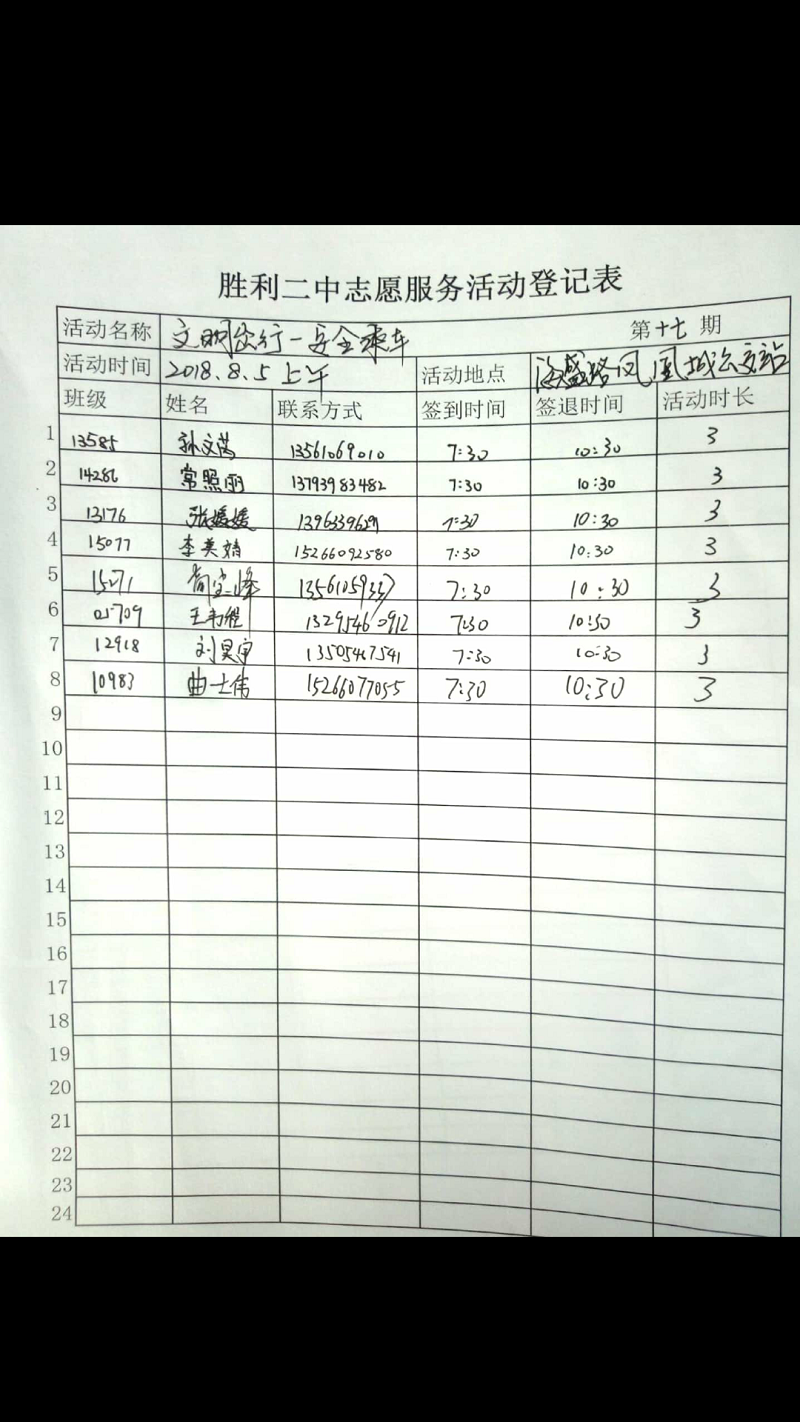 胜利二中志愿服务活动登记表
活动名称 文明出行-安全乘车 第十七期
活动时间 2018.8.5 上午 活动地点 海盛路凤凰城公交站
班级 姓名 联系方式 签到时间 签退时间 活动时长
1 13585 孙文芮 13561069010 7:30 10:30 3
2 14286 常照丽 13793983482 7:30 10:30 3
3 13176 张媛媛 7:30 10:30 3
4 15077 李美婧 15266092580 7:30 10:30 3
5 15271 7:30 10:30 3
6 05709 13295460912 7:30 10:30 3
7 12918 刘昊宇 13505467541 7:30 10:30 3
8 10983 曲士伟 15266077055 7:30 10:30 3
9
10
11
12
13
14
15
16
17
18
19
20
21
22
23
24